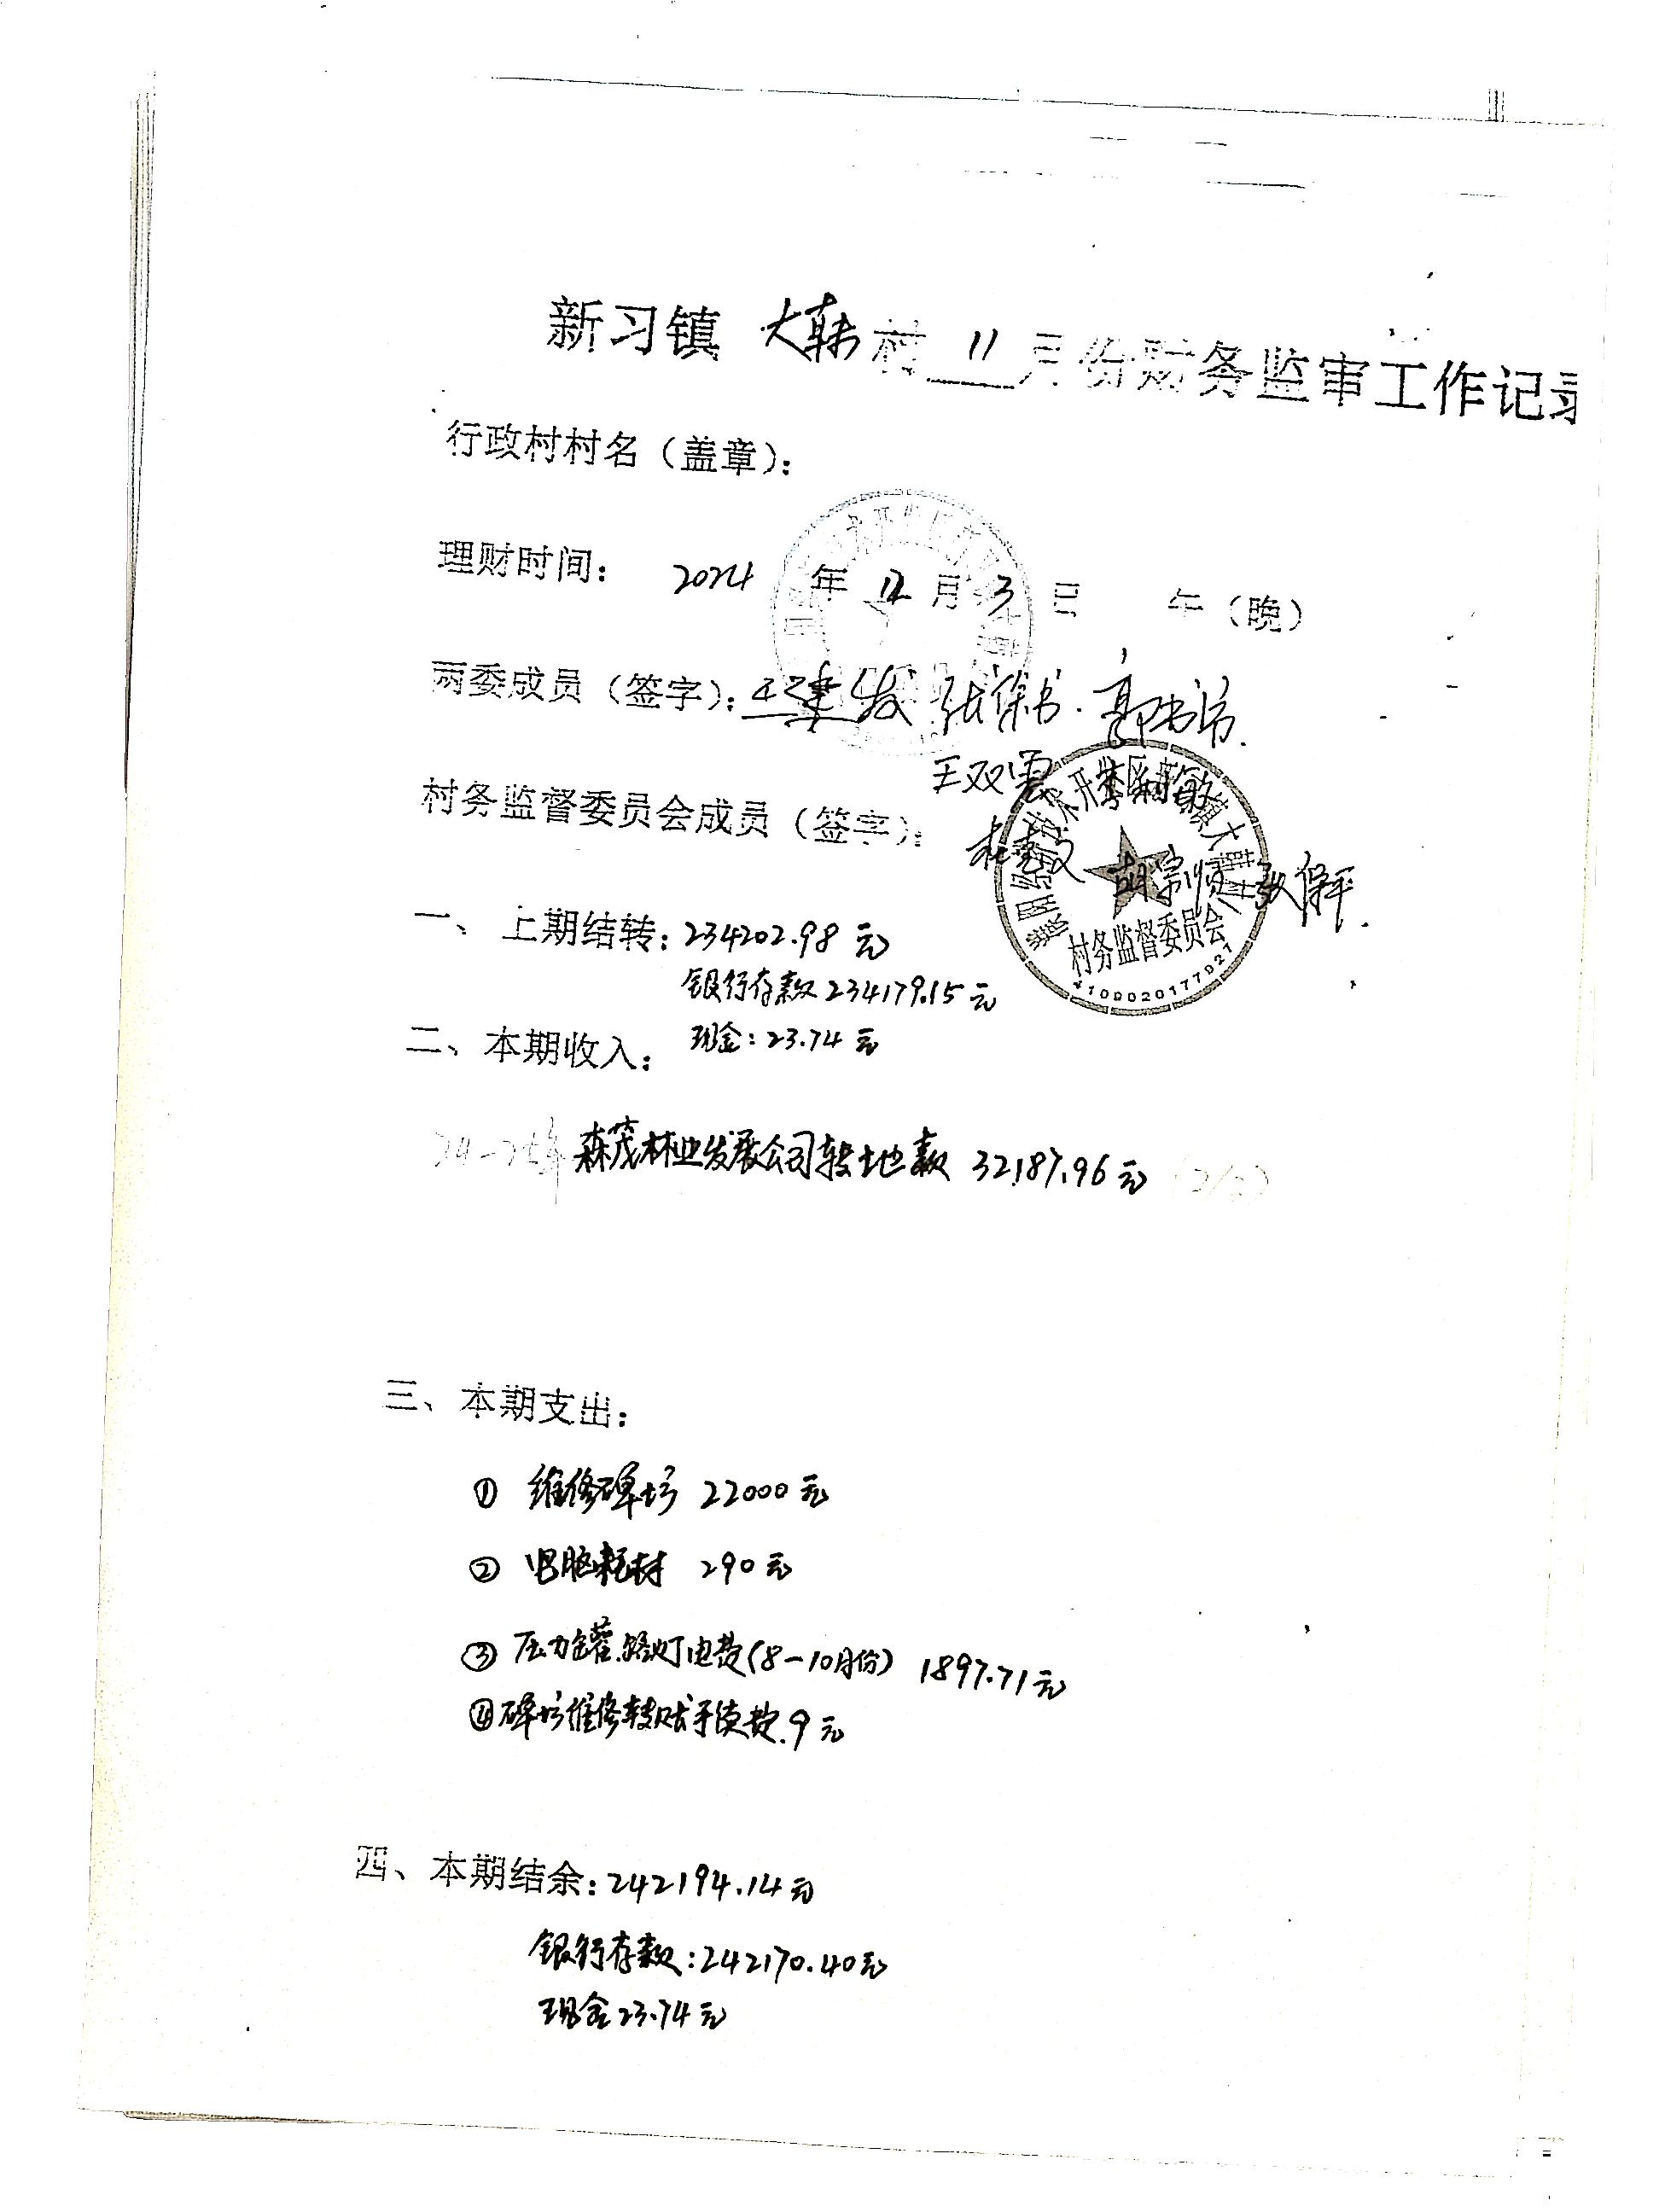 新习镇 大韩村 11 月份财务监审工作记录
行政村村名（盖章）：
理财时间： 2024 年 12 月 3 日 午（晚）
两委成员（签字）： 王建发 张保书 郭书涛
王双雲 李利敏
村务监督委员会成员（签字）：
胡宗顺 张保平
村务监督委员会
4109020177927
一、 上期结转：234202.98 元
银行存款 234179.15 元
二、本期收入： 现金：23.74 元
24-25年 森茂林业发展公司转地款 32187.96 元
三、本期支出：
① 维修碑坊 22000 元
② 电脑耗材 290 元
③ 压力罐.路灯电费（8-10月份） 1897.71 元
④ 碑坊维修转账手续费.9 元
四、本期结余：242194.14 元
银行存款：242170.40 元
现金 23.74 元